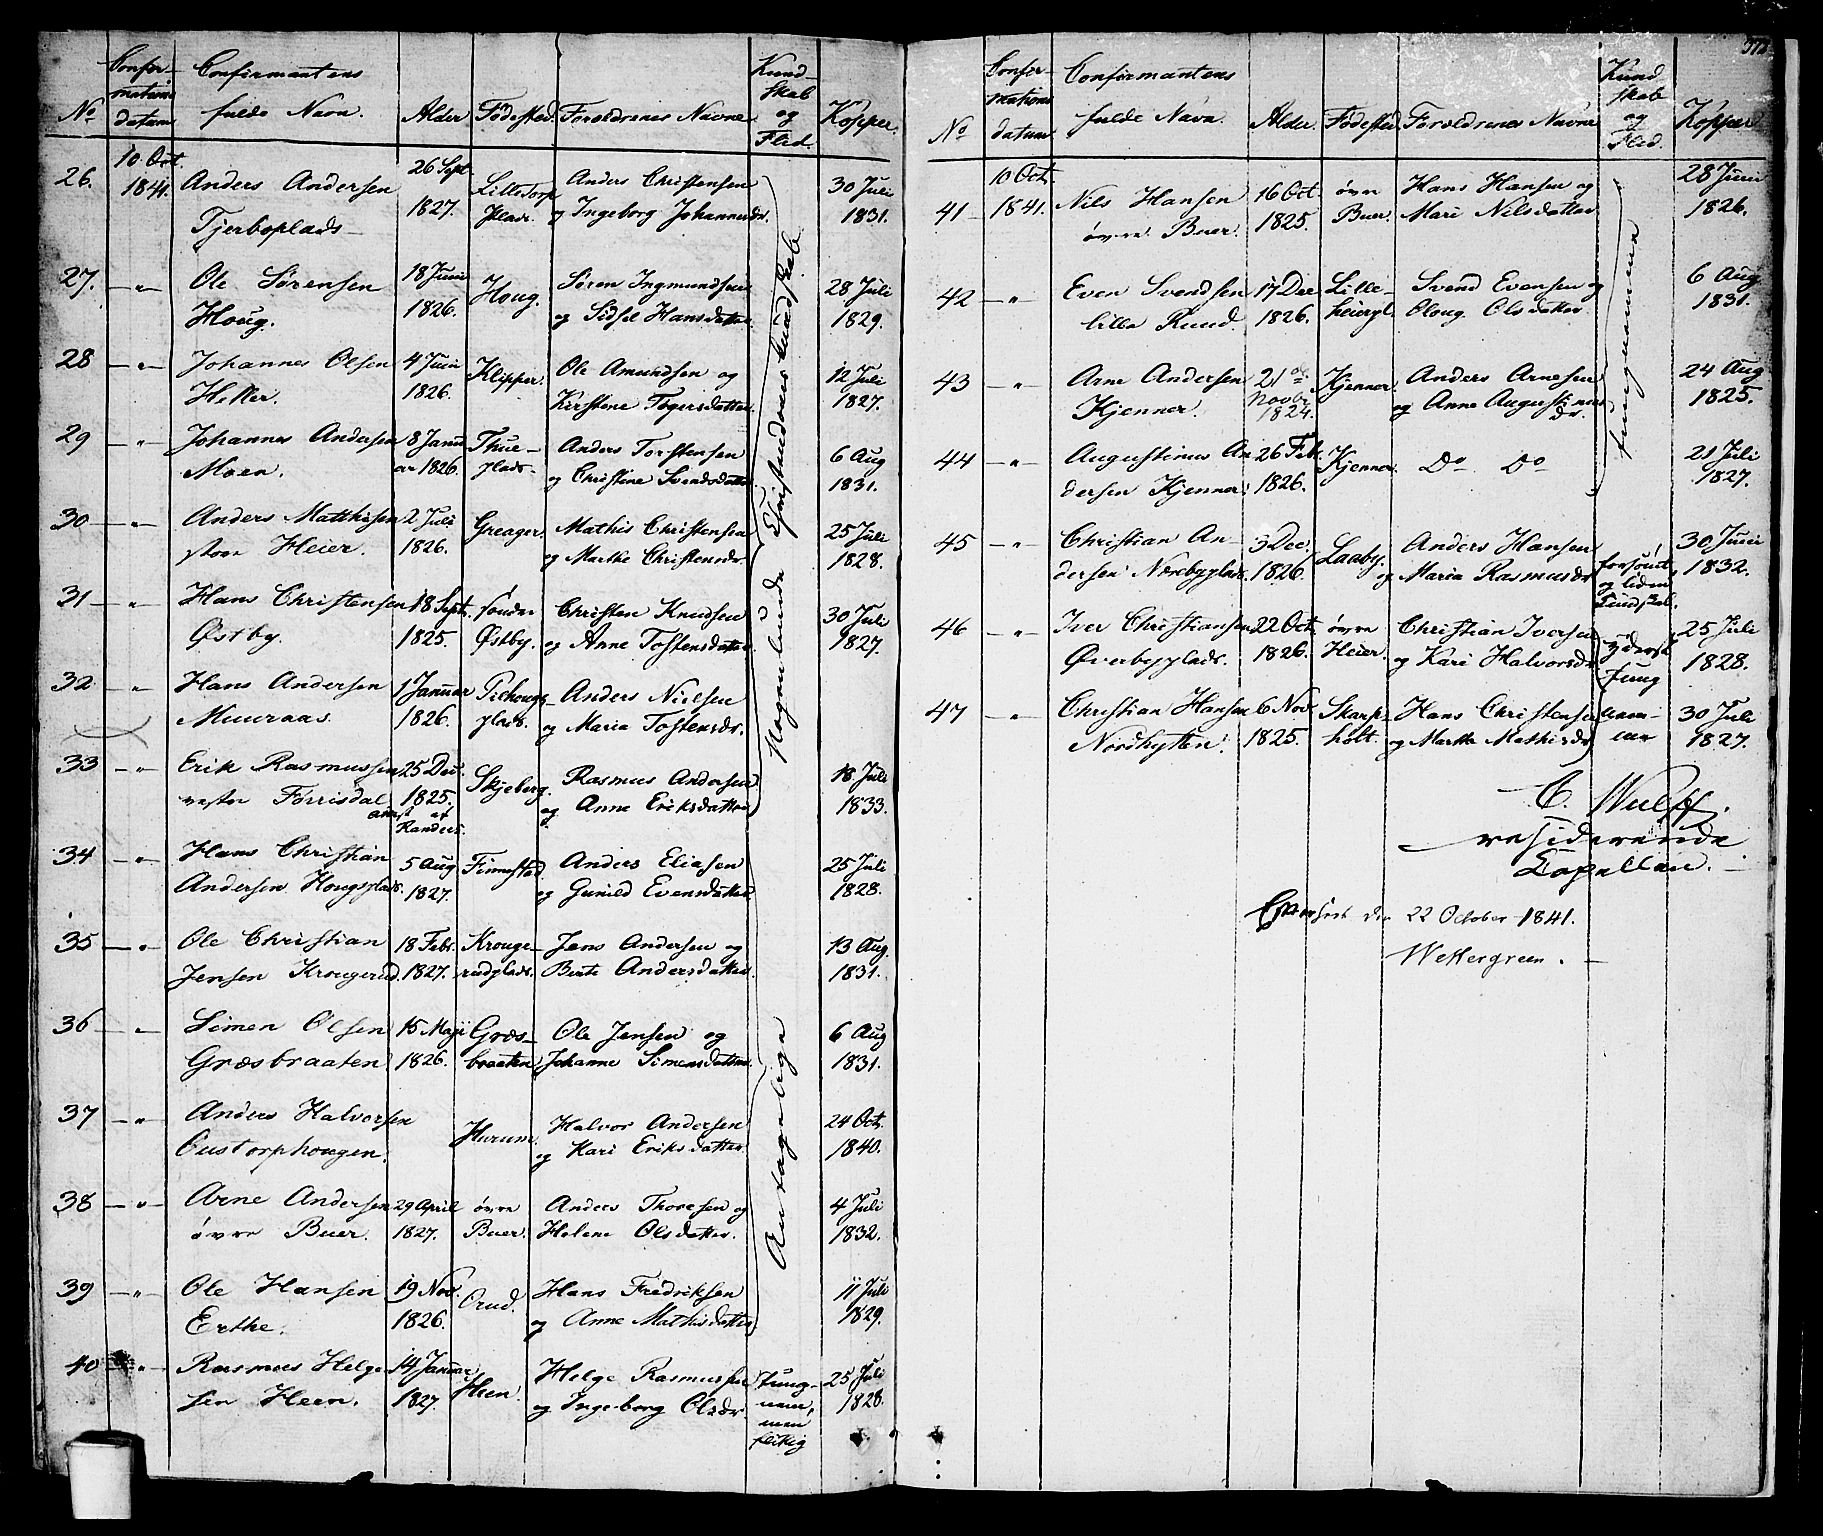 No
Confirmations datum
Confirmantens fulde Navn.
Alder
Fødested.
Forældrenes Navne
Kundskab og Flid.
Kopper.
26. 10 Oct. 1841. Anders Andersen 26 Sept Anders Christensen 30 Juli
Tjerboplads 1827. Plads. og Ingeborg Johannesdr. 1831.
27. " Ole Sørensen 18 Juni Houg. Søren Ingmundsen 28 Juli
Houg. 1826. og Sidsel Hansdatter 1829.
28 " Johannes Olsen 4 Juni Klipper. Ole Amundsen og 12 Juli
Heller. 1826. Kirstene Tøgersdatter 1827.
29 " Johannes Andersen 8 Janu Thue- Anders Torstensen 6 Aug
Moen. ar 1826. plads. og Christine Svendsdatter 1831.
30 " Anders Mathisen 2 Juli Greager. Mathis Christensen 25 Juli
store Heier. 1826. og Marthe Christensdr. 1828.
31 " Hans Christensen 18 Sept. søndre Christen Knudsen 30 Juli
Østby. 1825. Østby. og Anne Tostensdatter 1827.
32 " Hans Andersen 1 Januar Anders Nielsen
Muuraas. 1826. plads. og Maria Tostensdr.
33 " Erik Rasmussen 25 Dec. Skjeberg. Rasmus Andersen 18 Juli
vestre Førrisdal 1825. og Anne Eriksdatter 1833.
34 " Hans Christian 5 Aug Finnestad Anders Eliasen 25 Juli
Andersen Hougsplads. 1827. og Gunild Evensdatter 1828.
35 " Ole Christian 18 Febr. Krouge- Jens Andersen og 13 Aug
Jensen Krougerud. 1827. rudplads. Berte Andersdatter. 1831.
36 " Simen Olsen 15 Maji Græs- Ole Jensen og 6 Aug
Græsbraaten 1826. braaten Johanne Simensdatter. 1831.
37 " Anders Halvorsen Hurum. Halvor Andersen 24 Oct.
Oustorphougen. og Kari Eriksdatter. 1840.
38 " Arne Andersen 29 April øvre Anders Thoresen og 4 Juli
øvre Buer. 1827. Buer. Helene Olsdatter. 1832.
39 " Ole Hansen 19 Nov. Orud. Hans Fredriksen 11 Juli
Erthe. 1826. og Anne Mathisdatter 1829.
40 " Rasmus Helge- 14 Januar Heen. Helge Rasmussen tung- 25 Juli
sen Heen. 1827. og Ingeborg Olsdr. nem, 1828.
men
flittig
Nogenlunde Christendoms Kundskab
Antagelige
No
Confirmations datum
Confirmantens fulde Navn.
Alder.
Fødested
Forældrenes Navne
Kundskab og Flid.
Kopper
41 10 Oct. 1841. Nils Hansen 16 Oct. øvre Hans Hansen og 28 Juni
øvre Buer. 1825. Buer. Mari Nilsdatter 1826.
42 " Even Svendsen 17 Dec Lille- Svend Evensen og 6 Aug
lille Rund. 1826. Oloug Olsdatter 1831.
43 " Arne Andersen 21de Kjenner. Anders Arnesen 24 Aug
Kjenner. Novbr 1824. og Anne Augustinusdr. 1825.
44 " Augustinus An 26 Feb. Kjenner. Do Do 21 Juli
dersen Kjenner. 1826. 1827.
tungnemme
45 " Christian An- 3 Dec. Laaby. Anders Hansen forsömt, 30 Juni
dersen Næsbyplads. 1826. og Maria Rasmusdr. og liden Kundskab. 1832.
46 " Iver Christiansen 22 Oct. øvre Christian Iversen yderst 25 Juli
Øverbyplads. 1826. Heier. og Kari Halvorsdr. tung 1828.
47 " Christian Hansen 6 Nov. Skarp- Hans Christensen 30 Juli
Nordhytten. 1825. holt. og Marthe Mathisdr. 1827.
C. Wulff.
residerende
Capellan.
Efterseet den 22 October 1841.
Wettergreen.